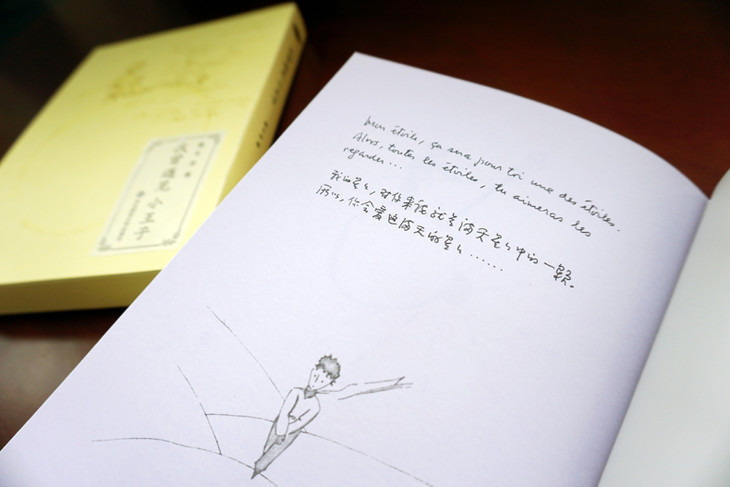 mon étoile, ça sera pour toi une des étoiles.
Alors, toutes les étoiles, tu aimeras les
regarder...
我的星星,对你来说就是满天星星中的一颗。
所以,你会爱也满天的星星......
我曾遇见小王子